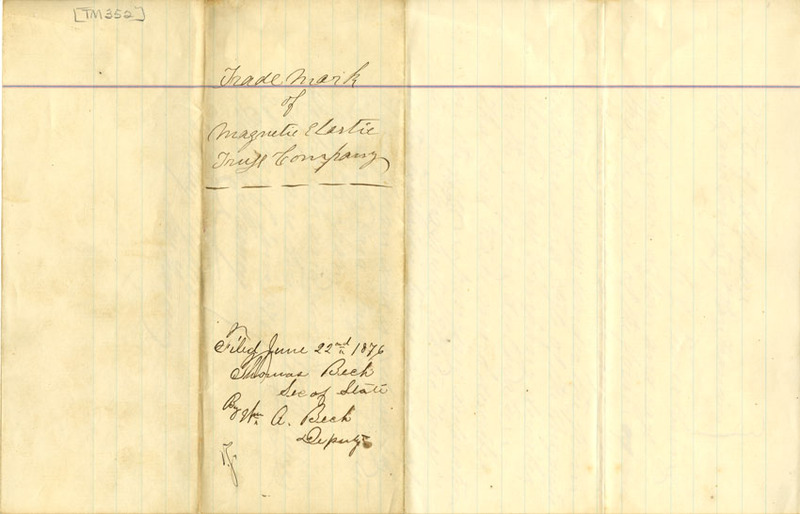 [TM352]
Trade Mark
of
Magnetic Elastic
Truss Company
Filed June 22nd 1876
Thomas Beck
Sec of State
By Wm A. Beck
Deputy